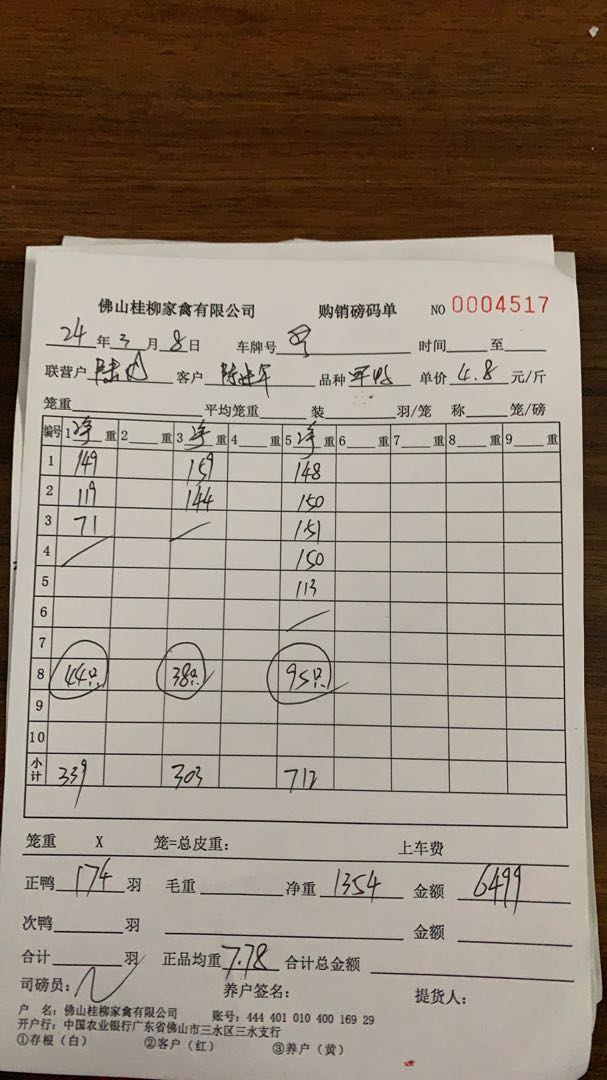 佛山桂柳家禽有限公司 购销磅码单 NO 0004517
24 年 3 月 8 日 车牌号 时间 至
联营户 陈 客户 陈建军 品种 单价 4.8 元/斤
笼重 平均笼重 装 羽/笼 称 笼/磅
编号 1 净 重 2 重 3 净 重 4 重 5 净 重 6 重 7 重 8 重 9 重
1 149 159 148
2 119 144 150
3 71 151
4 150
5 113
6
7
8 44只 38只 95只
9
10
小计 339 303 712
笼重 X 笼=总皮重: 上车费
正鸭 174 羽 毛重 净重 1354 金额 6499
次鸭 羽 金额
合计 羽 正品均重 7.78 合计总金额
司磅员: 养户签名: 提货人:
户 名: 佛山桂柳家禽有限公司 账号: 444 401 010 400 169 29
开户行: 中国农业银行广东省佛山市三水区三水支行
①存根（白） ②客户（红） ③养户（黄）